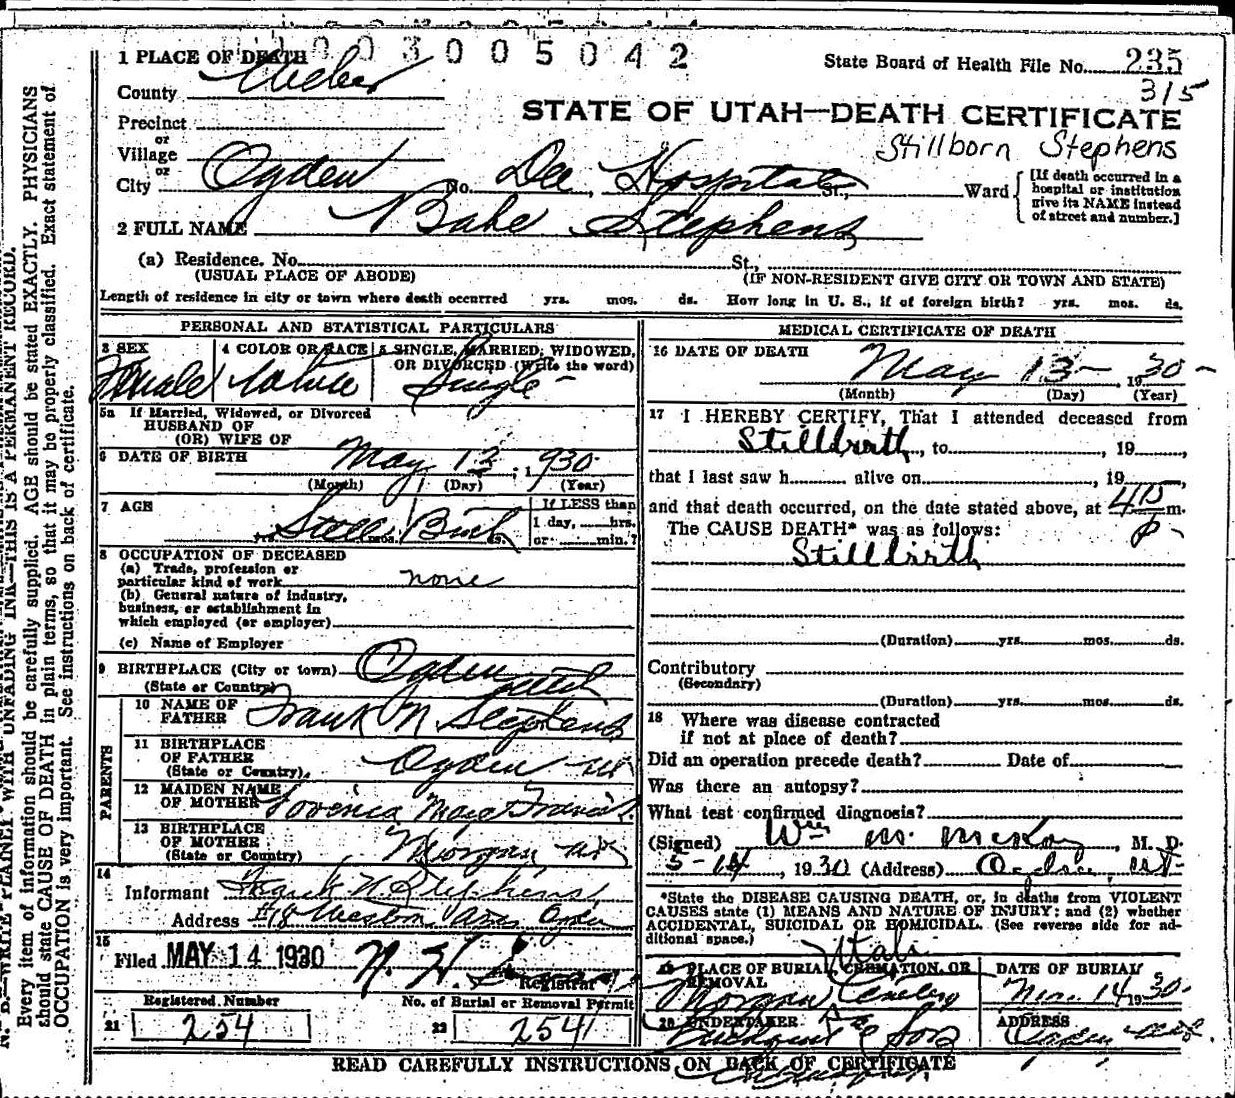 1003005042
1 PLACE OF DEATH
State Board of Health File No. 235
315
County Weber
STATE OF UTAH—DEATH CERTIFICATE
Precinct
or
Village
Stillborn Stephens
or
City Ogden No. Dee Hospital St., Ward
[If death occurred in a hospital or institution give its NAME instead of street and number.]
2 FULL NAME Babe Stephens
(a) Residence. No. St.,
(USUAL PLACE OF ABODE) (IF NON-RESIDENT GIVE CITY OR TOWN AND STATE)
Length of residence in city or town where death occurred yrs. mos. ds. How long in U. S., if of foreign birth? yrs. mos. ds.
PERSONAL AND STATISTICAL PARTICULARS
3 SEX Female
4 COLOR OR RACE White
5 SINGLE, MARRIED, WIDOWED, OR DIVORCED (Write the word) Single
5a If Married, Widowed, or Divorced
HUSBAND OF
(OR) WIFE OF
6 DATE OF BIRTH May 13, 1930
(Month) (Day) (Year)
7 AGE Still Birth
yrs. mos. ds.
If LESS than
1 day, hrs.
or min.?
8 OCCUPATION OF DECEASED
(a) Trade, profession or
particular kind of work none
(b) General nature of industry,
business, or establishment in
which employed (or employer)
(c) Name of Employer
9 BIRTHPLACE (City or town) Ogden
(State or Country) Utah
PARENTS
10 NAME OF FATHER Frank N Stephens
11 BIRTHPLACE OF FATHER (State or Country) Ogden Ut
12 MAIDEN NAME OF MOTHER Mary Francis
13 BIRTHPLACE OF MOTHER (State or Country) Morgan Ut
14
Informant Frank N Stephens
Address Ogden
15
Filed MAY 14 1930 N. H.
Registrar
Registered Number No. of Burial or Removal Permit
21 254 22 254
MEDICAL CERTIFICATE OF DEATH
16 DATE OF DEATH May 13 1930
(Month) (Day) (Year)
17 I HEREBY CERTIFY, That I attended deceased from
Stillbirth, to, 19,
that I last saw h alive on, 19,
and that death occurred, on the date stated above, at m.
The CAUSE DEATH* was as follows: p
Stillbirth
(Duration) yrs. mos. ds.
Contributory
(Secondary)
(Duration) yrs. mos. ds.
18 Where was disease contracted
if not at place of death?
Did an operation precede death? Date of
Was there an autopsy?
What test confirmed diagnosis?
(Signed) Wm M. McKay, M. D.
5-14, 1930 (Address) Ogden, Ut
*State the DISEASE CAUSING DEATH, or, in deaths from VIOLENT
CAUSES state (1) MEANS AND NATURE OF INJURY; and (2) whether
ACCIDENTAL, SUICIDAL OR HOMICIDAL. (See reverse side for ad-
ditional space.)
Utah
19 PLACE OF BURIAL, CREMATION, OR REMOVAL
Morgan Cemetery
DATE OF BURIAL
14 1930
20 UNDERTAKER & Sons
ADDRESS
Ogden Utah
READ CAREFULLY INSTRUCTIONS ON BACK OF CERTIFICATE
N. B.—WRITE PLAINLY WITH UNFADING INK—THIS IS A PERMANENT RECORD.
Every item of information should be carefully supplied. AGE should be stated EXACTLY. PHYSICIANS
should state CAUSE OF DEATH in plain terms, so that it may be properly classified. Exact statement of
OCCUPATION is very important. See instructions on back of certificate.